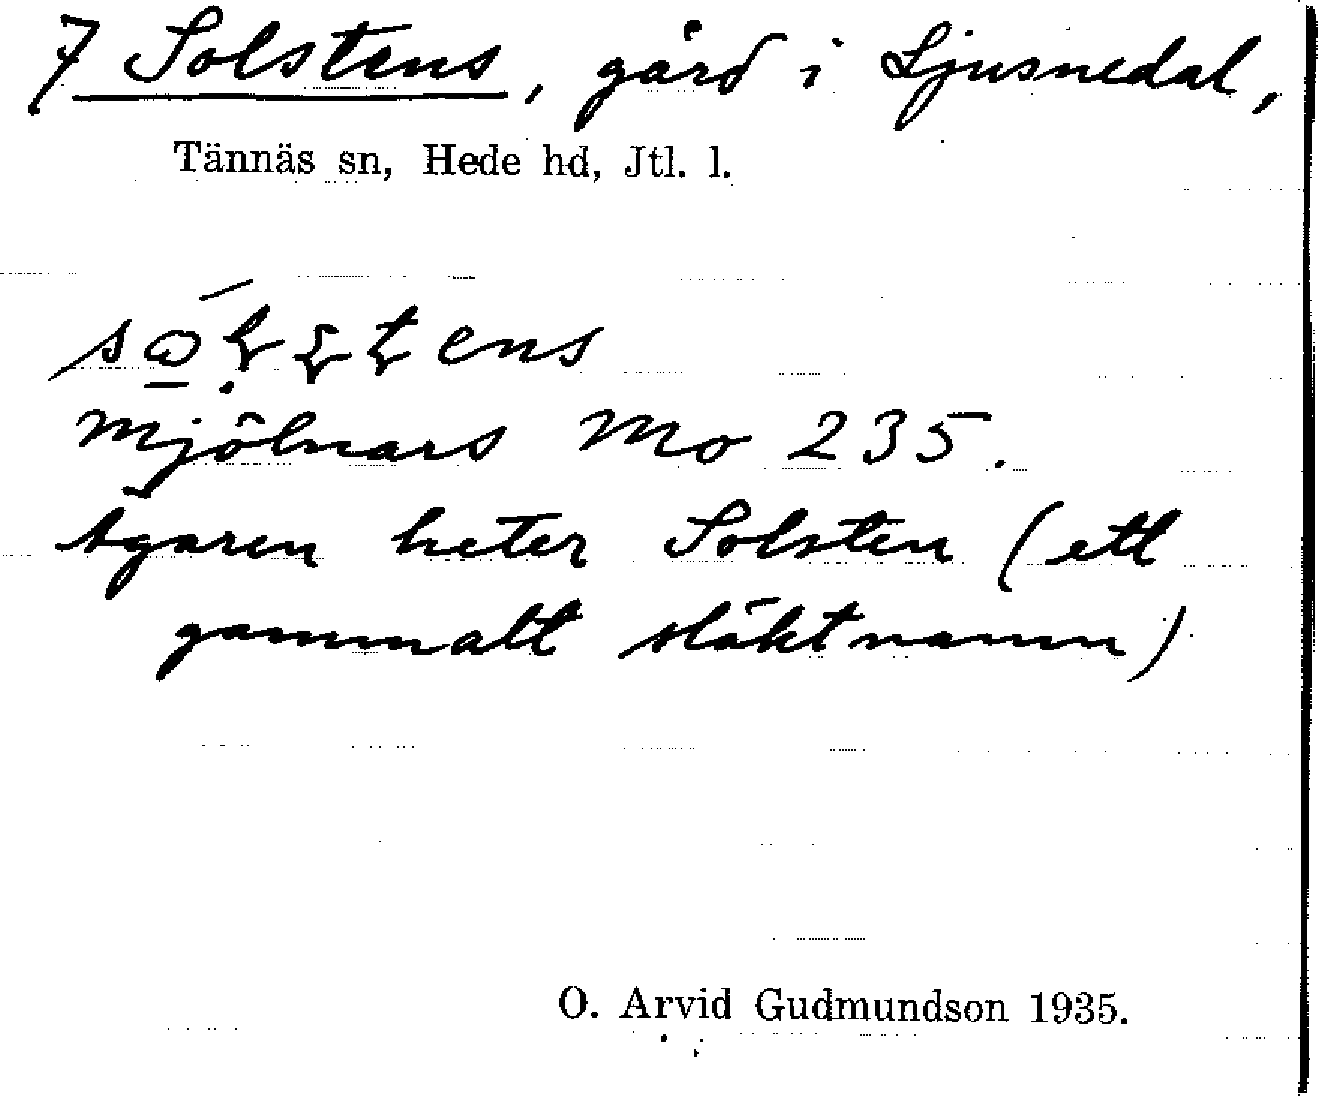 7 Solstens, gård i Ljusnedal,
Tännäs sn, Hede hd, Jtl. l.
Mjölnars Mo 235.
Ägaren heter Solsten (ett
gammalt släktnamn)
O. Arvid Gudmundson 1935.